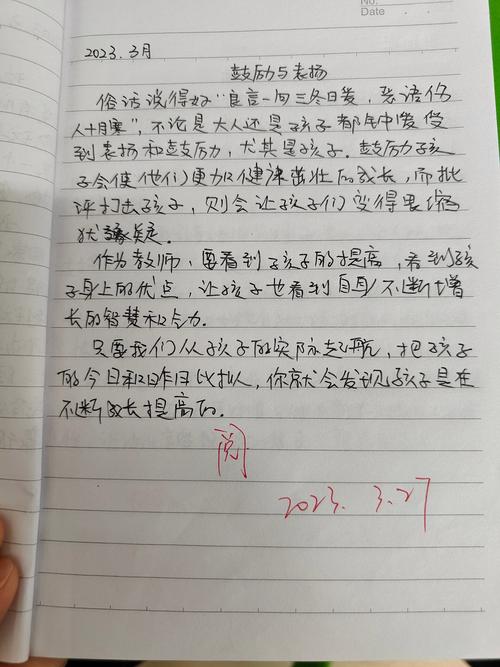 No.
Date
2023.3月
鼓励与表扬
俗话说得好"良言一句三冬日暖，恶语伤
人十月寒"，不论是大人还是孩子都钟爱受
到表扬和鼓励，尤其是孩子．鼓励孩
子会使他们更加健康茁壮的成长，而批
评打击孩子，则会让孩子们变得畏缩
犹豫疑．
作为教师，要看到孩子的提高，看到孩
子身上的优点，让孩子也看到自身不断增
长的智慧和能力．
只要我们从孩子的实际起航，把孩子
的今日和昨日比拟，你就会发现孩子是在
不断成长提高的．
阅
2023. 3.27